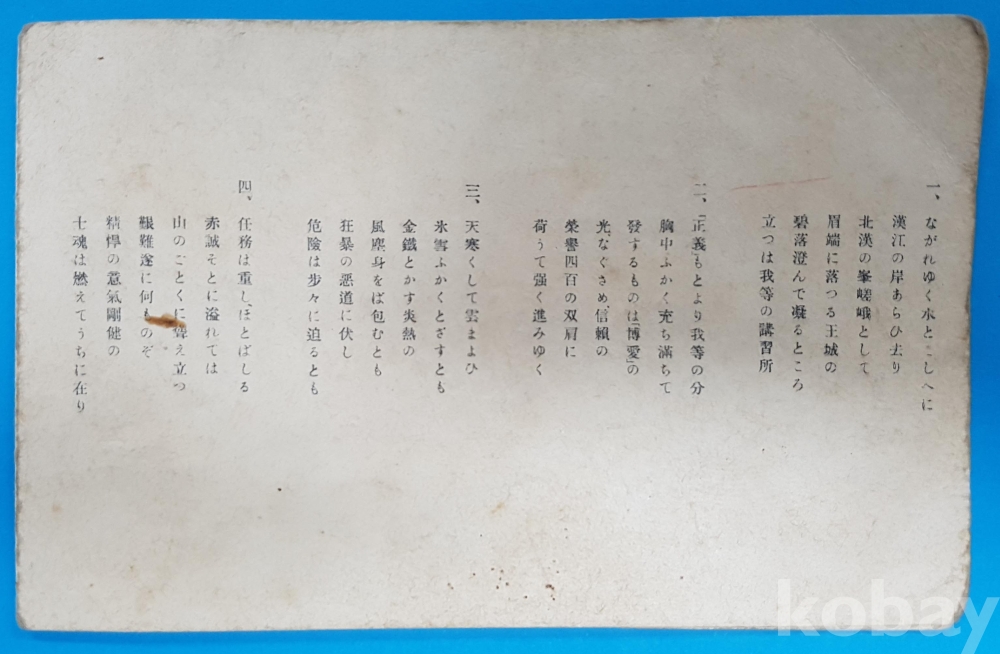 一、ながれゆく水とこしへに
漢江の岸あらひ去り
北漢の峯嵯峨として
眉端に落つる王城の
碧落澄んで凝るところ
立つは我等の講習所
二、「正義」もとより我等の分
胸中ふかく充ち満ちて
發するものは「博愛」の
光なぐさめ信頼の
榮譽四百の双肩に
荷うて强く進みゆく
三、天寒くして雲まよひ
氷雪ふかくとざすとも
金鐵とかす炎熱の
風塵身をば包むとも
狂暴の惡道に伏し
危險は步々に迫るとも
四、任務は重し、ほとばしる
赤誠そとに溢れては
山のごとくに聳え立つ
艱難遂に何ものぞ
精悍の意氣剛健の
士魂は燃えてうちに在り
kobay